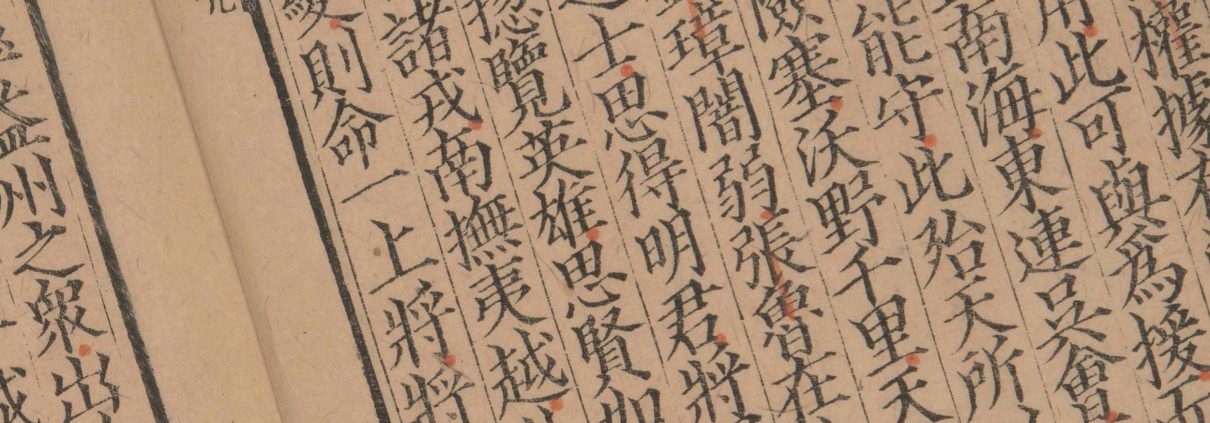 權據有
用此可與爲援而
南海東連吳會
能守此殆天所
險塞沃野千里天
璋闇弱張魯在
士思得明君將
揔覽英雄思賢如
諸戎南撫夷越
變則命一上將將
益州之眾出